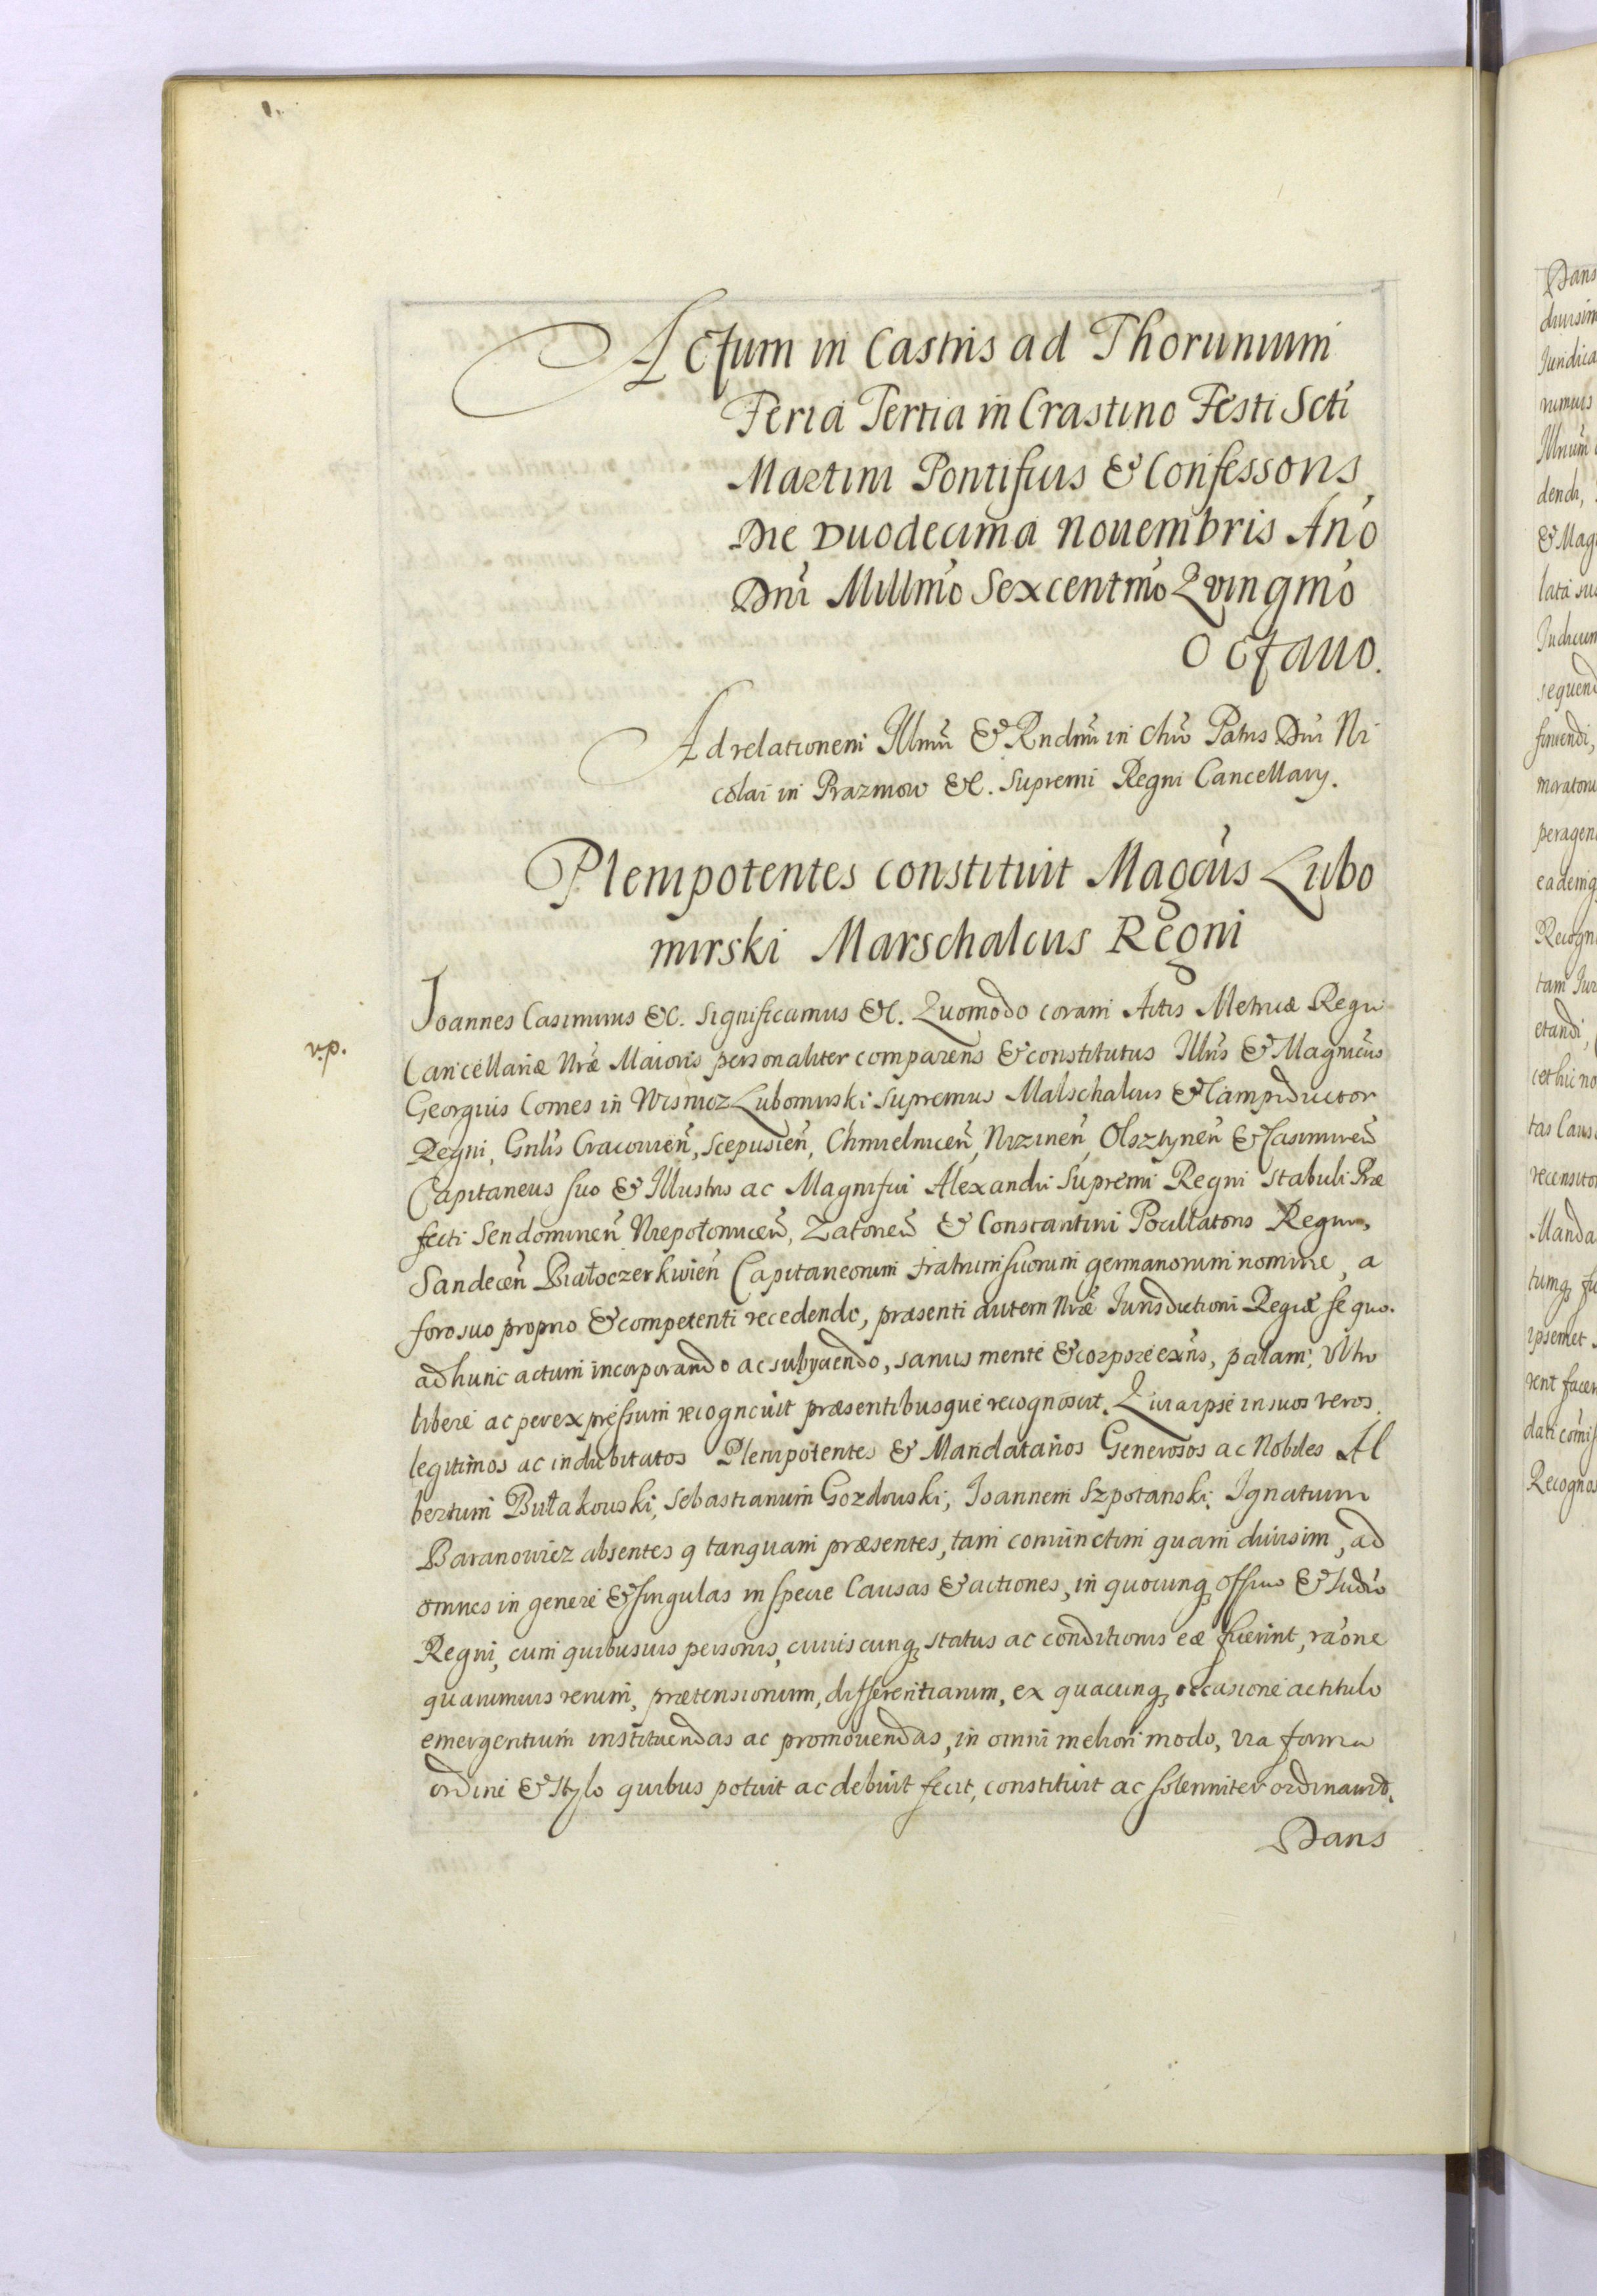 Actum in Castris ad Thorunium
Feria Tertia in Crastino Festi Scti
Martini Pontificis & Confessoris,
Die Duodecima Nouembris Ano
Dni Millmo Sexcentmo Qvingmo
Octauo.
Ad relationem Illmi & Rndmi in Chro Patris Dni Ni
colai in Prazmow &c. Supremi Regni Cancellarij.
Plenipotentes constituit Magcus Lubo
mirski Marschalcus Regni
Joannes Casimirus &c. Significamus &c. Quomodo coram Actis Metricæ Regni
v.p.
Cancellariæ Nræ Maioris personaliter comparens & constitutus Illris & Magnicus
Georgius Comes in Wisnicz Lubomirski Supremus Malschalcus & Campiductor
Regni, Gnlis Cracouien, Scepusien, Chmielnicen, Nizinen, Olsztynen & Casimiren
Capitaneus suo & Illustris ac Magnifici Alexandri Supremi Regni Stabuli Præ
fecti Sendomiren Niepołomicen, Zatoren & Constantini Pocillatoris Regni,
Sandecen Białoczerkwien Capitaneorum fratrum suorum germanorum nomine, a
foro suo proprio & competenti recedendo, præsenti autem Nræ Iurisdictioni Regiæ se quo.
ad hunc actum incorporando ac subyciendo, sanus mente & corpore exns, palam, Vltro
libere ac per expressum recognouit præsentibusque recognoscit. Quia ipse in suos veros
legitimos ac indubitatos Plenipotentes & Mandatarios Generosos ac Nobiles Al
bertum Bułakouski, Sebastianum Gozdouski, Joannem Szpotanski, Ignatium
Baranowicz absentes q tanquam præsentes, tam coniunctim quam diuisim, ad
omnes in genere & singulas in specie Causas & actiones, in quocunq officio & Iudio
Regni, cum quibusuis personis, cuiuscunq status ac conditionis eæ fuerint, raone
quarumuis rerum, prætensionum, differentiarum, ex quacunq occasione ac titulo
emergentium instituendas ac promouendas, in omni meliori modo, via forma
ordine & stylo quibus potuit ac debuit fecit, constituit ac solenniter ordinauit.
Dans